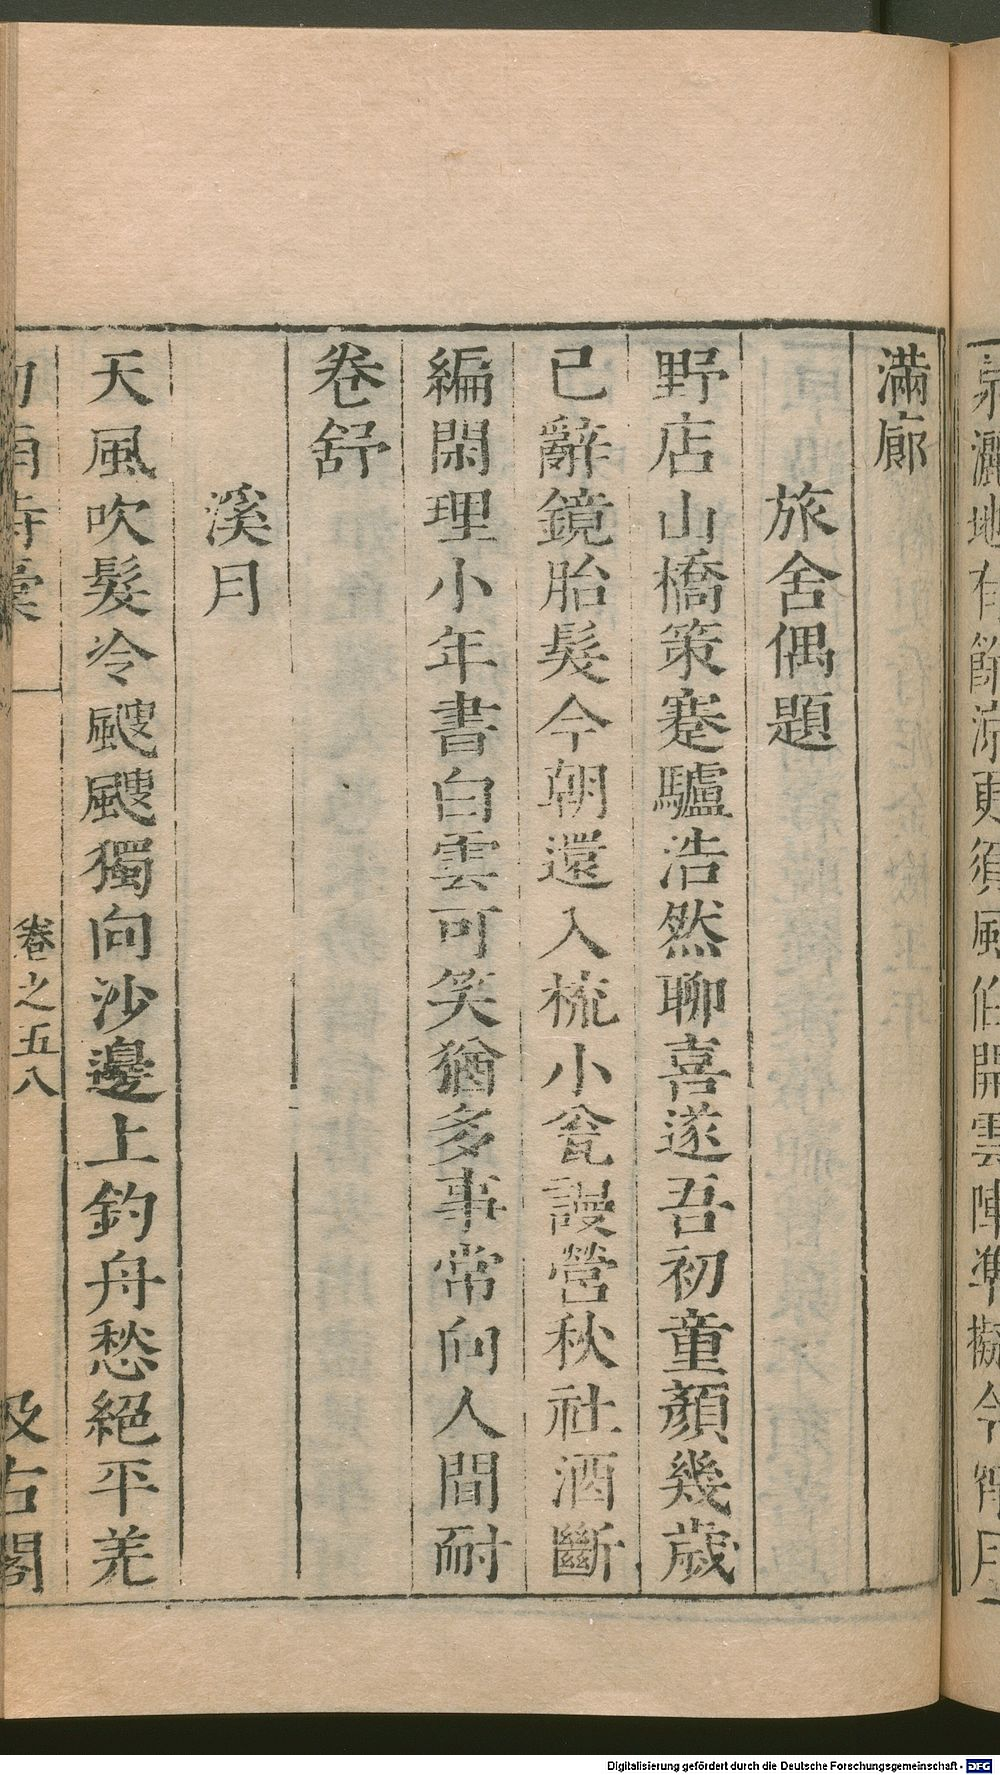 泉灑地有餘涼更須風伯開雲陣準擬今宵月
滿廊
旅舍偶題
野店山橋策蹇驢浩然聊喜遂吾初童顏幾歲
已辭鏡胎髮今朝還入梳小瓮謾營秋社酒斷
編閑理小年書白雲可笑猶多事常向人間耐
卷舒
溪月
天風吹髮冷颼颼獨向沙邊上釣舟愁絕平羌
劍南詩稾
卷之五八
汲古閣
Digitalisierung gefördert durch die Deutsche Forschungsgemeinschaft - DFG